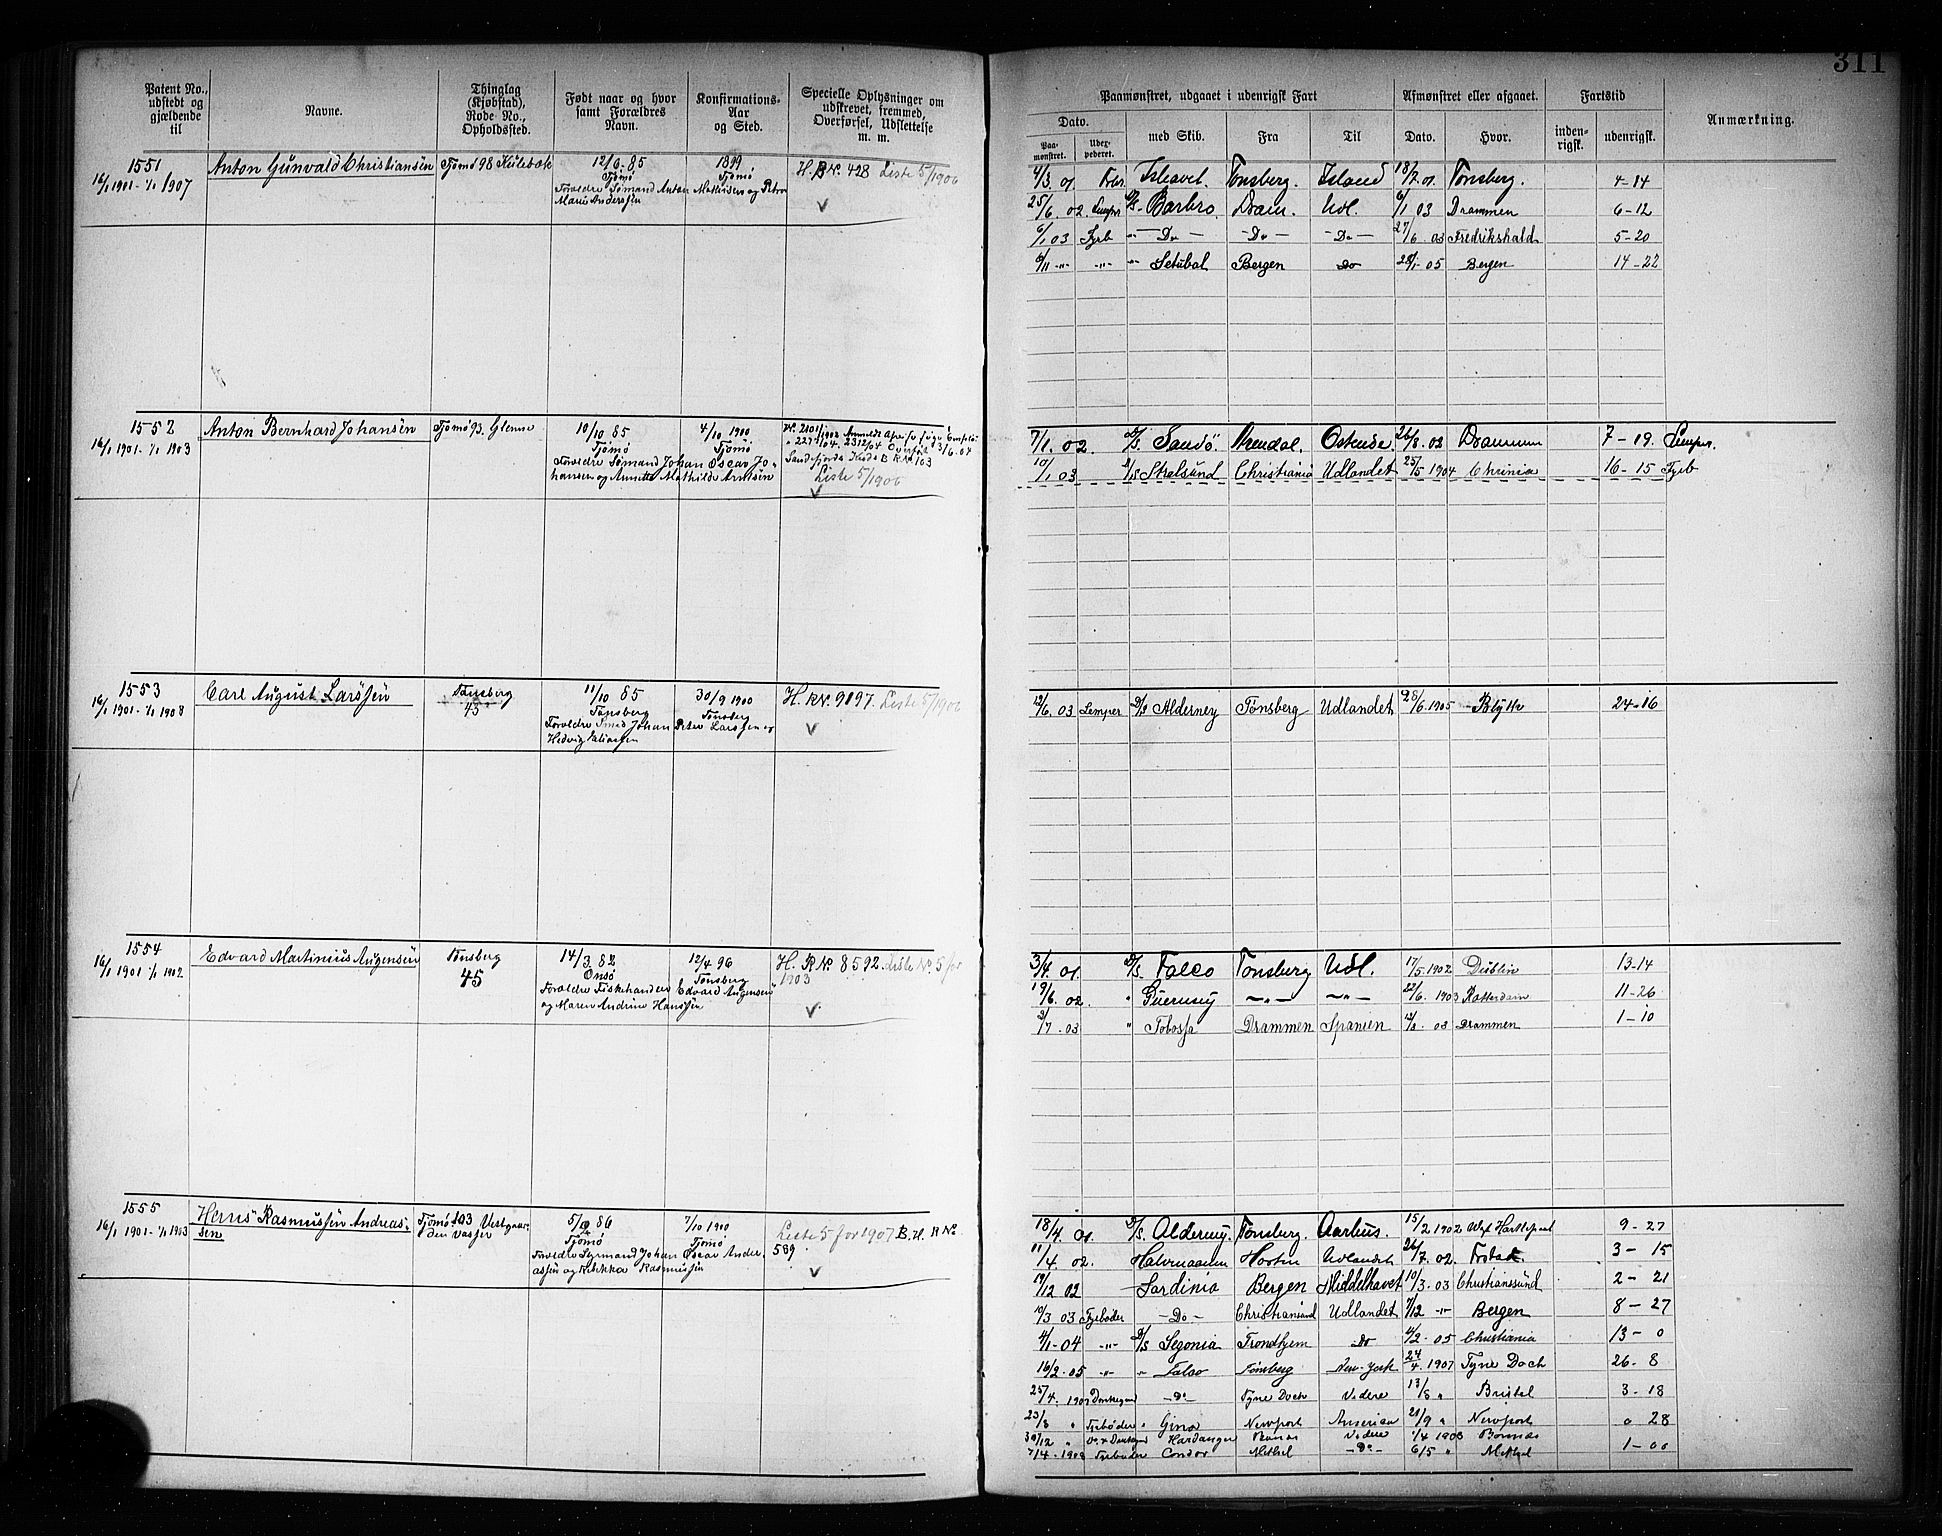 311
Patent No., udstedt og gjældende til
Navne.
Thinglag (Kjøbstad), Rode No., Opholdssted.
Født naar og hvor samt Forældres Navn.
Konfirmations-Aar og Sted.
Specielle Oplysninger om udskrevet, fremmed, Overførsel, Udslettelse m. m.
Paamønstret, udgaaet i udenrigsk Fart
Afmønstret eller afgaaet.
Fartstid
Anmærkning.
Dato.
Paa-mønstret.
med Skib.
Fra
Til
Dato.
Hvor.
inden-rigsk.
udenrigsk.
1551
16/1 1901 - 1/1 1907
Anton Gunvald Christiansen
Tjømø 98 Kulebæk
12/6 - 85
Tjømø
1899
Tjømø
Forældre Sømand Anton Mathisen og Petra
Marie Anderssen
H. R No. 428 Liste 5/1906
4/3 01 Ishavet. Tønsberg. Island 18/7 01. Tønsberg. 4-14
25/6 02 Semper D/S Barbro Dram. Udl. 6/1 03 Drammen 6-12
6/1 03 Fyrb " - Do - - Do - - Do - 27/6 03 Fredrikshald 5-20
6/11 -"- -"- " Setubal Bergen Do 28/1 05 Bergen 14-22
1552
16/1 1901 - 1/1 1903
Anton Bernhard Johansen
Tjømø 93. Glenne
10/10 85
Tjømø
4/10 1900
Tjømø
Forældre Sømand Johan Oscar Jo-
hansen og Annette Mathilde Arntsen
Sandefjords Kreds B R No. 103
Liste 5/1906
7/1 02 D/S Sandø Arendal. Ostende 26/8 02 Drammen 7-19. Semper.
10/1 03 D/S Stralsund Christiania Udlandet 25/5 1904 Chrinia 16-15 Fyrb
1553
16/1 1901 - 1/1 1908
Carl August Larssen
Tønsberg
45
11/10 85
Tønsberg
30/9 1900
Tønsberg
Forældre Smed Johan Peter Larssen og
Hedvig
H. R No. 9097. Liste 5/1906
12/6 03 Semper D/S Alderney Tønsberg Udlandet 28/6 1905 Blyth 24-16
1554
16/1 1901 1/1 1902
Edvard Martinius Augensen
Tønsberg
45
14/3 82
Onsø
12/4 96
Tønsberg
Forældre Fiskehandler Edvard Augensen
og Maren Andrine Hanssen
H. R No. 8592. Liste No. 5 for
1903
3/4 01 D/S Falco Tønsberg Udl. 17/5 1902 Dublin 13-14
19/6 02 " Guernsey -"- -"- 22/6 1903 Rotterdam 11-26
2/7 03 " Tobossa Drammen Spanien 12/8 03 Drammen 1-10
1555
16/1 1901 - 1/1 1903
Hans Rasmussen Andreas-
sen
Tjømø 103 Vestgaar-
den Vasser
5/9 86
Tjømø
7/10 1900
Tjømø
Forældre Styrmand Johan Oscar Andre-
assen og Rebekka Rasmussen
Liste 5 for 1907 B. H. R No.
589
18/4 01 D/S Alderney. Tønsberg. Aarhus. 15/2 1902 West Hartlepool 9-27
11/4 02. Halvmaanen Horten Udlandet 26/7 02. 3-15
19/12 02 Sardinia Bergen Middelhavet 10/3 03 Christianssund 2-21
10/3 03 Fyrbøder - Do - Christiansund Udlandet 7/12 -"- Bergen 8-27
4/1 - 04 -"- D/S Segovia Trondhjem Do 4/2 - 05 Christiania 13-0
16/2 - 05 -"- " Falco Tønsberg New-York 24/4 1907 Tyne Dock 26-8
25/4 1907 Donkeyman - Do - Tyne Dock Videre 13/8 " Bristol 3-18
23/8 " Fyrbøder " Gina Newport Amerika 21/9 " Newport 0 28
30/12 " Hardanger Videre 1/4 1908
7/4 - 1908 Fyrbøder Condor Methil - Do - 6/5 " Methil 1-00